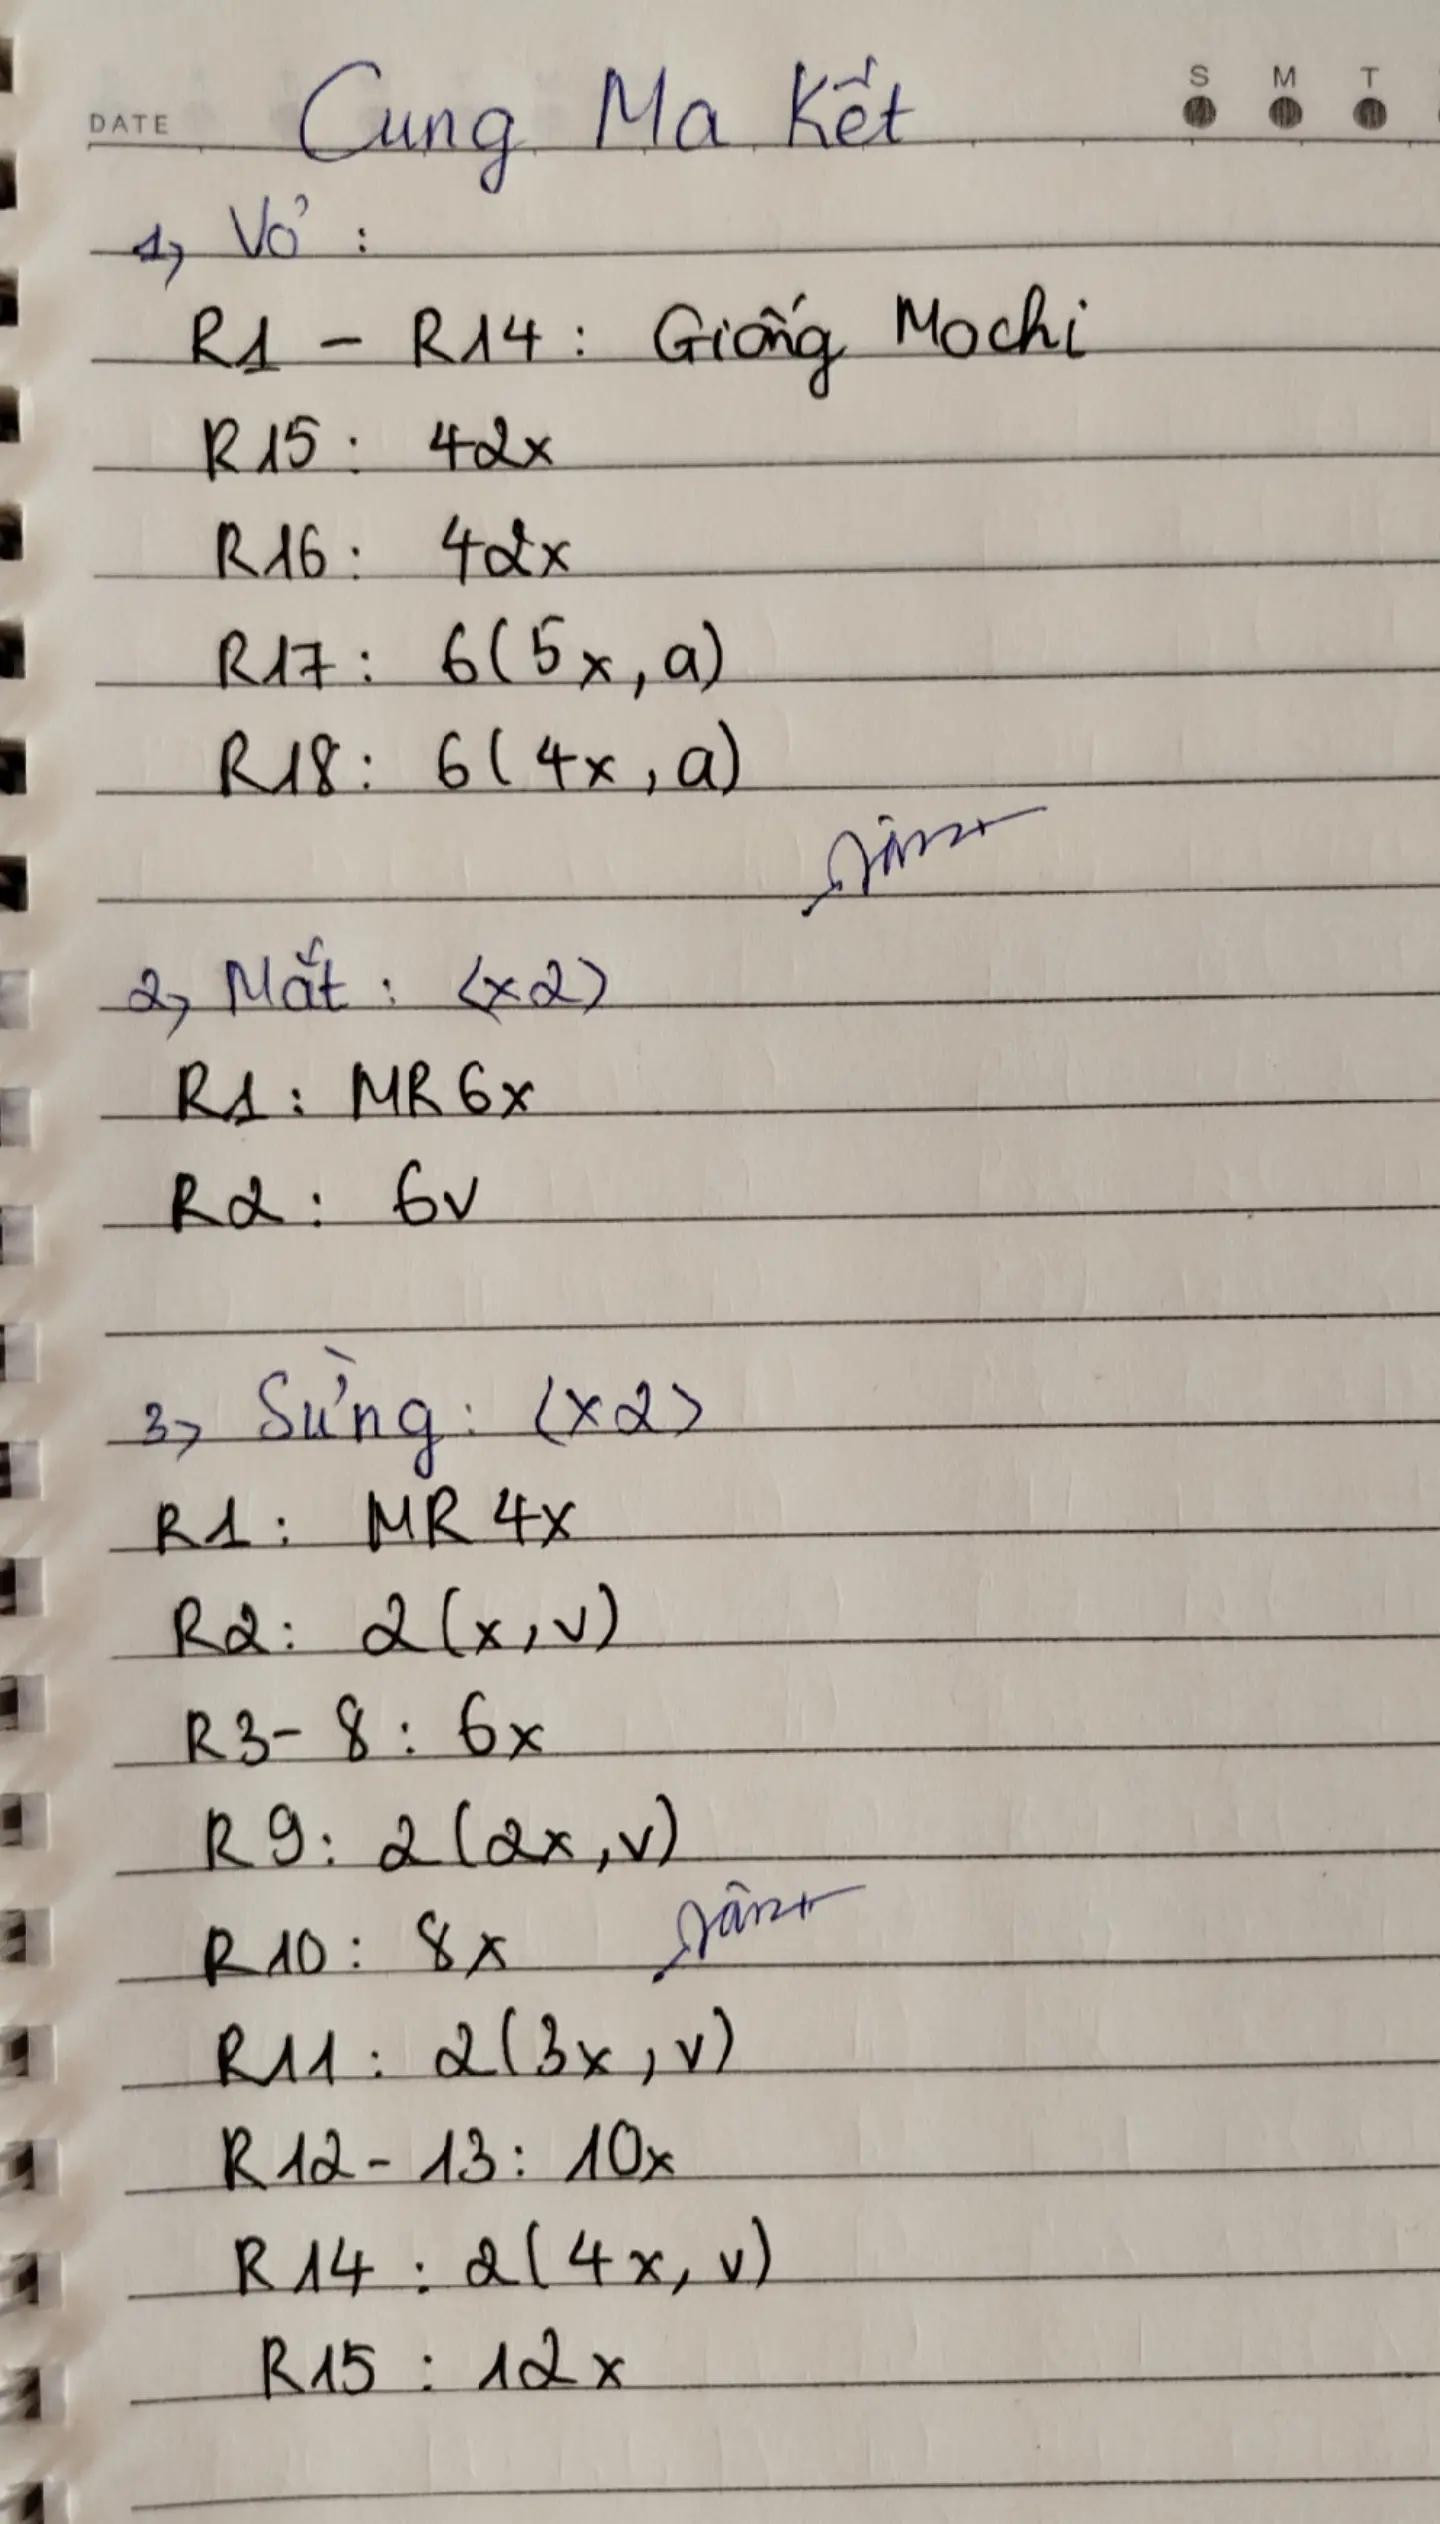 DATE Cung Ma Kết S M T
1, Vỏ :
R1 - R14 : Giống Mochi
R15 : 42x
R16 : 42x
R17 : 6(5x, a)
R18 : 6(4x, a)
2, Mắt : <x2>
R1 : MR 6x
R2 : 6v
3, Sừng : <x2>
R1 : MR 4x
R2 : 2(x, v)
R3 - 8 : 6x
R9 : 2(2x, v)
R10 : 8x
R11 : 2(3x, v)
R12 - 13 : 10x
R14 : 2(4x, v)
R15 : 12x